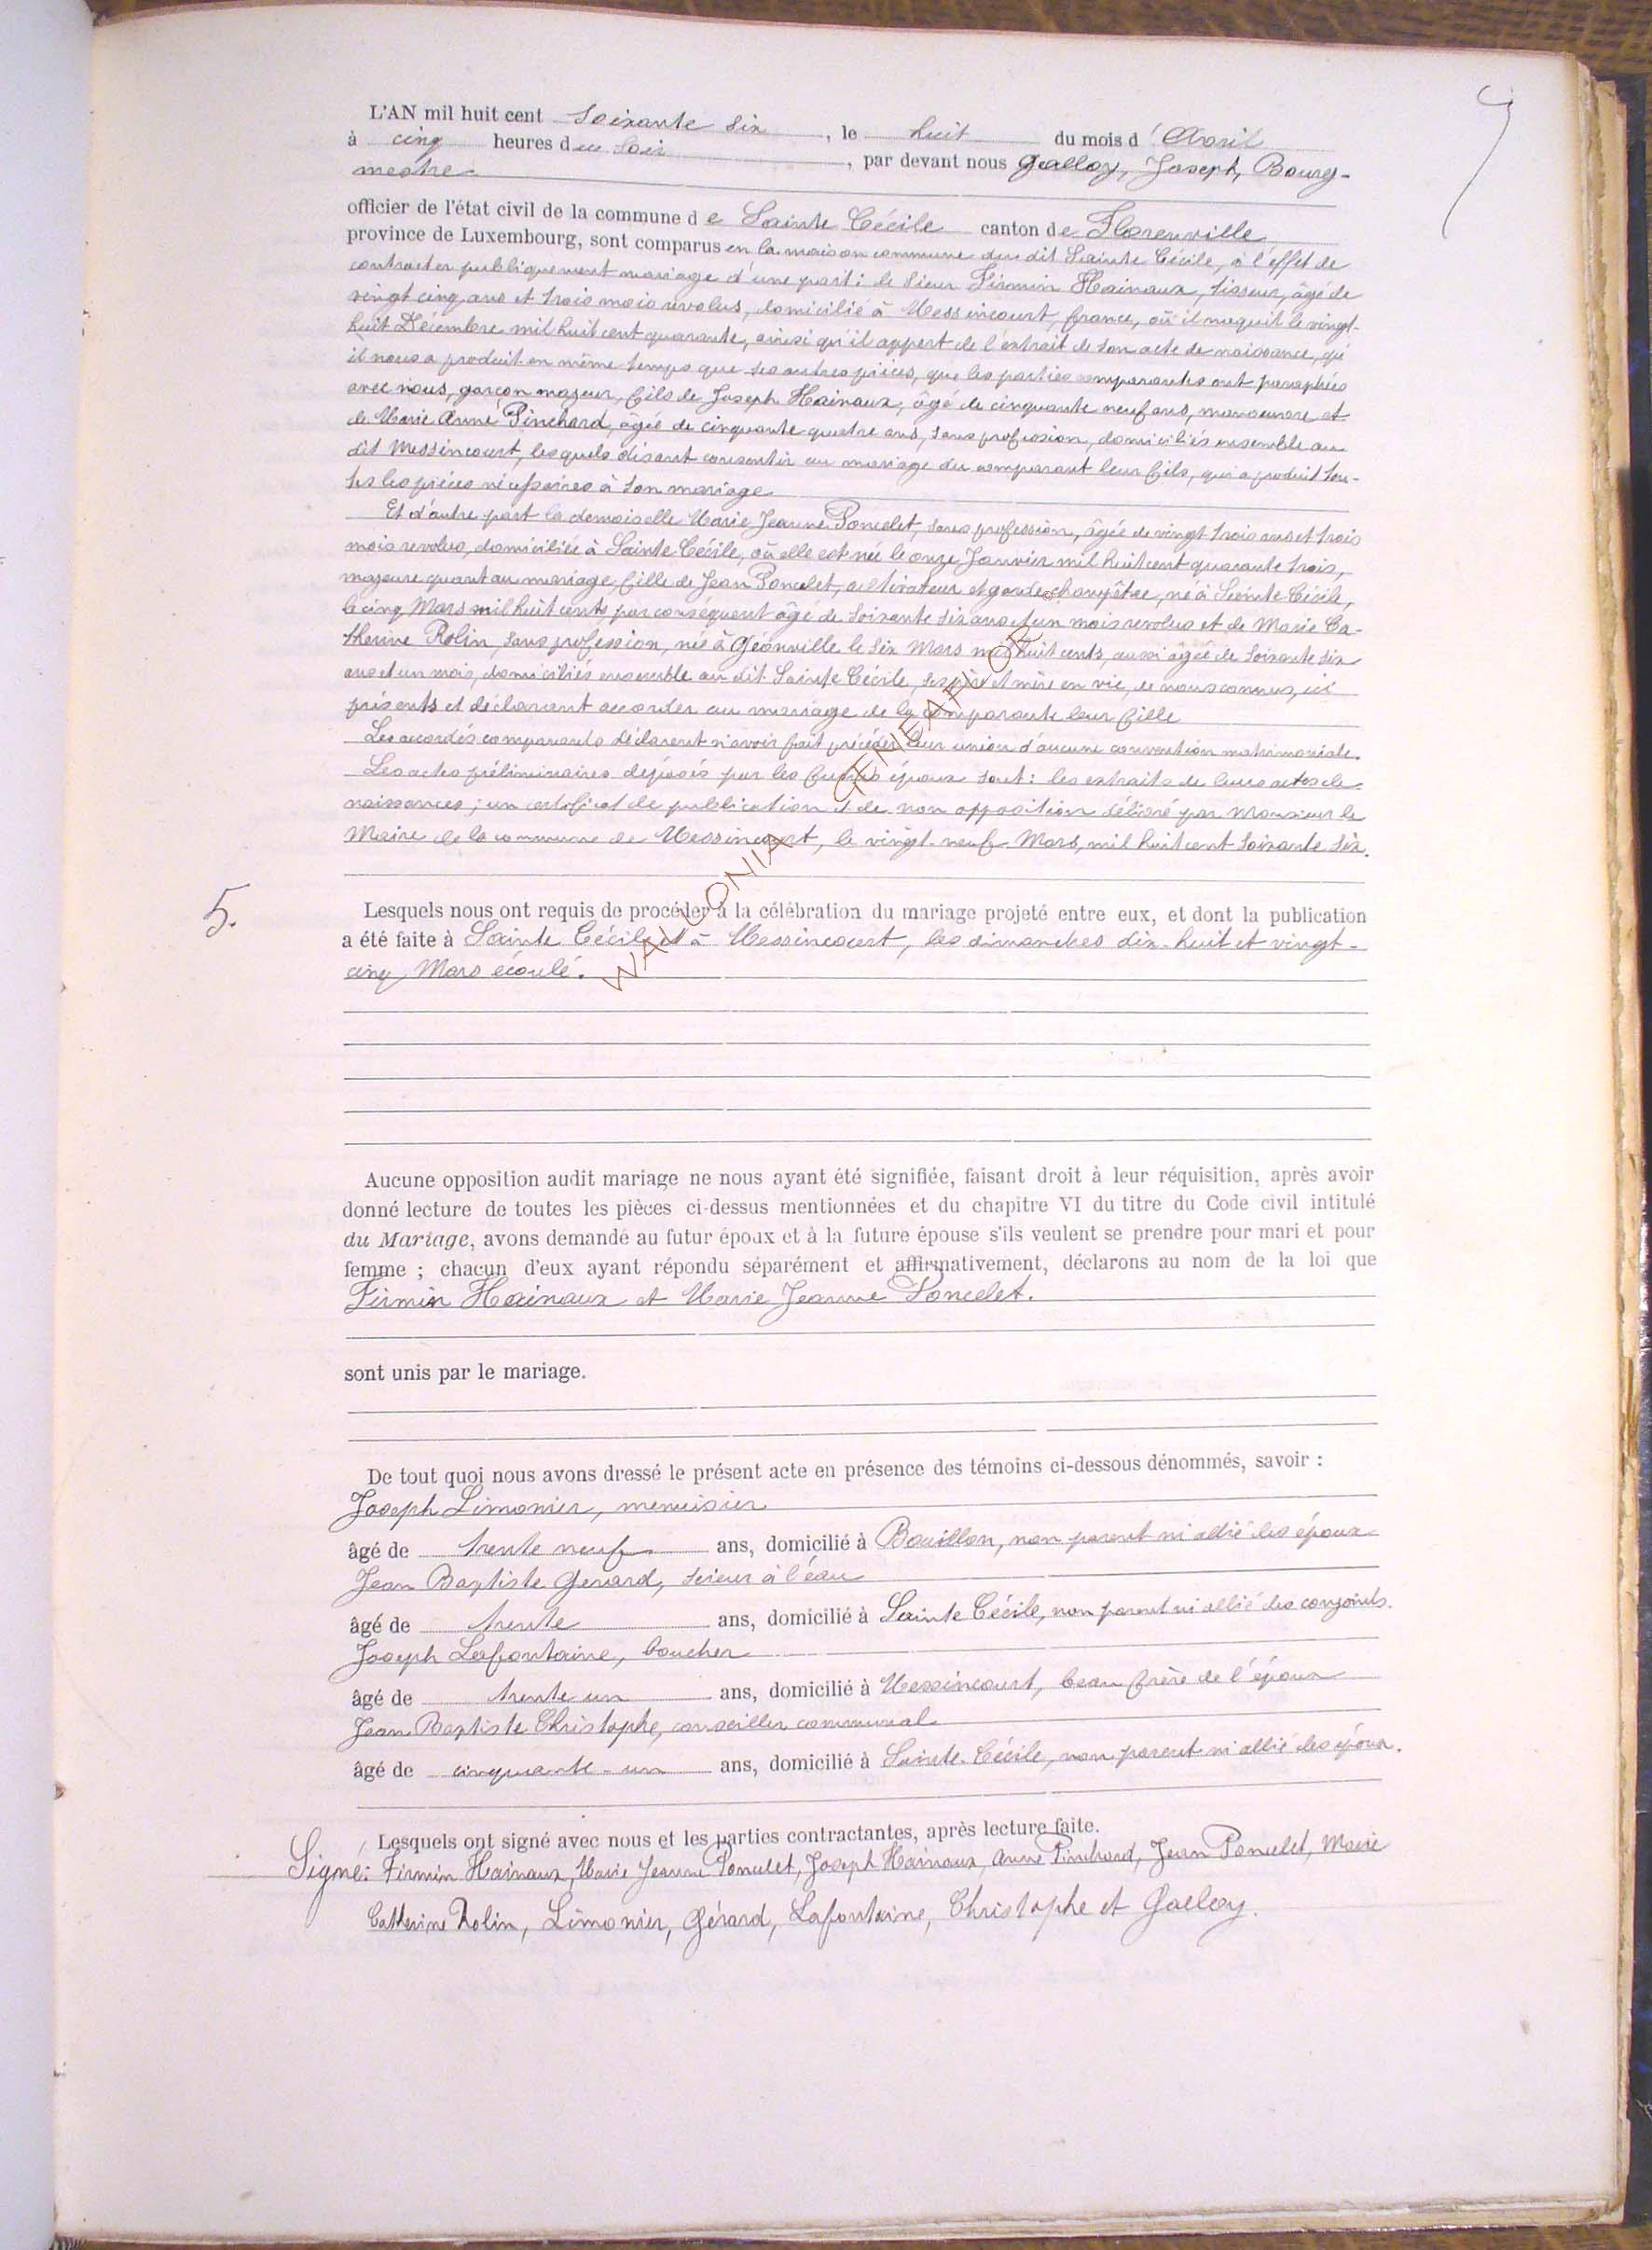 L'AN mil huit cent soixante six, le huit du mois d'Avril
à cinq heures du soir, par devant nous Galloy, Joseph, Bourg-
mestre
officier de l'état civil de la commune de Sainte Cécile canton de Florenville
province de Luxembourg, sont comparus en la maison commune du dit Sainte Cécile, à l'effet de
contracter publiquement mariage d'une part: le Sieur Firmin Hainaux, tisseur, âgé de
vingt cinq ans et trois mois revolus, domicilié à Messincourt, france, où il naquit le vingt-
huit Décembre mil huit cent quarante, ainsi qu'il appert de l'extrait de son acte de naissance, qu'
il nous a produit en même temps que ses autres pièces, que les parties comparantes ont paraphées
avec nous, garçon majeur, fils de Joseph Hainaux, âgé de cinquante neuf ans, manoeuvre et
de Marie Anne Pinchard, âgée de cinquante quatre ans, sans profession, domiciliés ensemble au
dit Messincourt, lesquels disant consentir au mariage du comparant leur fils, qui a produit tou-
tes les pièces nécessaires à son mariage
Et d'autre part la demoiselle Marie Jeanne Poncelet, sans profession, âgée de vingt trois ans et trois
mois revolus, domiciliée à Sainte Cécile, où elle est née le onze Janvier mil huit cent quarante trois,
majeure quant au mariage, fille de Jean Poncelet, cultivateur et garde champêtre, né à Sainte Cécile,
le cinq Mars mil huit cents, par conséquent âgé de soixante six ans et un mois revolus et de Marie Ca-
therine Rolin, sans profession, née à Géonville le six Mars mil huit cents, aussi âgée de soixante six
ans et un mois, domiciliés ensemble au dit Sainte Cécile, ses père et mère en vie, de nous connus, ici
présents et déclarant accorder au mariage de la comparante leur fille
Les accordés comparants déclarent n'avoir fait précéder leur union d'aucune convention matrimoniale.
Les actes préliminaires déposés par les futurs époux sont: les extraits de leurs actes de
naissances; un certificat de publication et de non opposition délivré par Monsieur le
Maire de la commune de Messincourt, le vingt-neuf Mars, mil huit cent soixante six.
5.
Lesquels nous ont requis de procéder à la célébration du mariage projeté entre eux, et dont la publication
a été faite à Sainte Cécile et à Messincourt, les dimanches dix-huit et vingt-
cinq Mars écoulé.
WALLONIA GENEAFLOR
Aucune opposition audit mariage ne nous ayant été signifiée, faisant droit à leur réquisition, après avoir
donné lecture de toutes les pièces ci-dessus mentionnées et du chapitre VI du titre du Code civil intitulé
du Mariage, avons demandé au futur époux et à la future épouse s'ils veulent se prendre pour mari et pour
femme ; chacun d'eux ayant répondu séparément et affirmativement, déclarons au nom de la loi que
Firmin Hainaux et Marie Jeanne Poncelet.
sont unis par le mariage.
De tout quoi nous avons dressé le présent acte en présence des témoins ci-dessous dénommés, savoir :
Joseph Limonier, menuisier
âgé de trente neuf ans, domicilié à Bouillon, non parent ni allié des époux
Jean Baptiste Gerard, scieur à l'eau
âgé de trente ans, domicilié à Sainte Cécile, non parent ni allié des conjoints.
Joseph Lafontaine, boucher
âgé de trente un ans, domicilié à Messincourt, beau frère de l'époux
Jean Baptiste Christophe, conseiller communal
âgé de cinquante-un ans, domicilié à Sainte-Cécile, non parent ni allié des époux.
Lesquels ont signé avec nous et les parties contractantes, après lecture faite.
Signé: Firmin Hainaux, Marie Jeanne Poncelet, Joseph Hainaux, Anne Pinchard, Jean Poncelet, Marie
Catherine Rolin, Limonier, Gérard, Lafontaine, Christophe et Galloy.